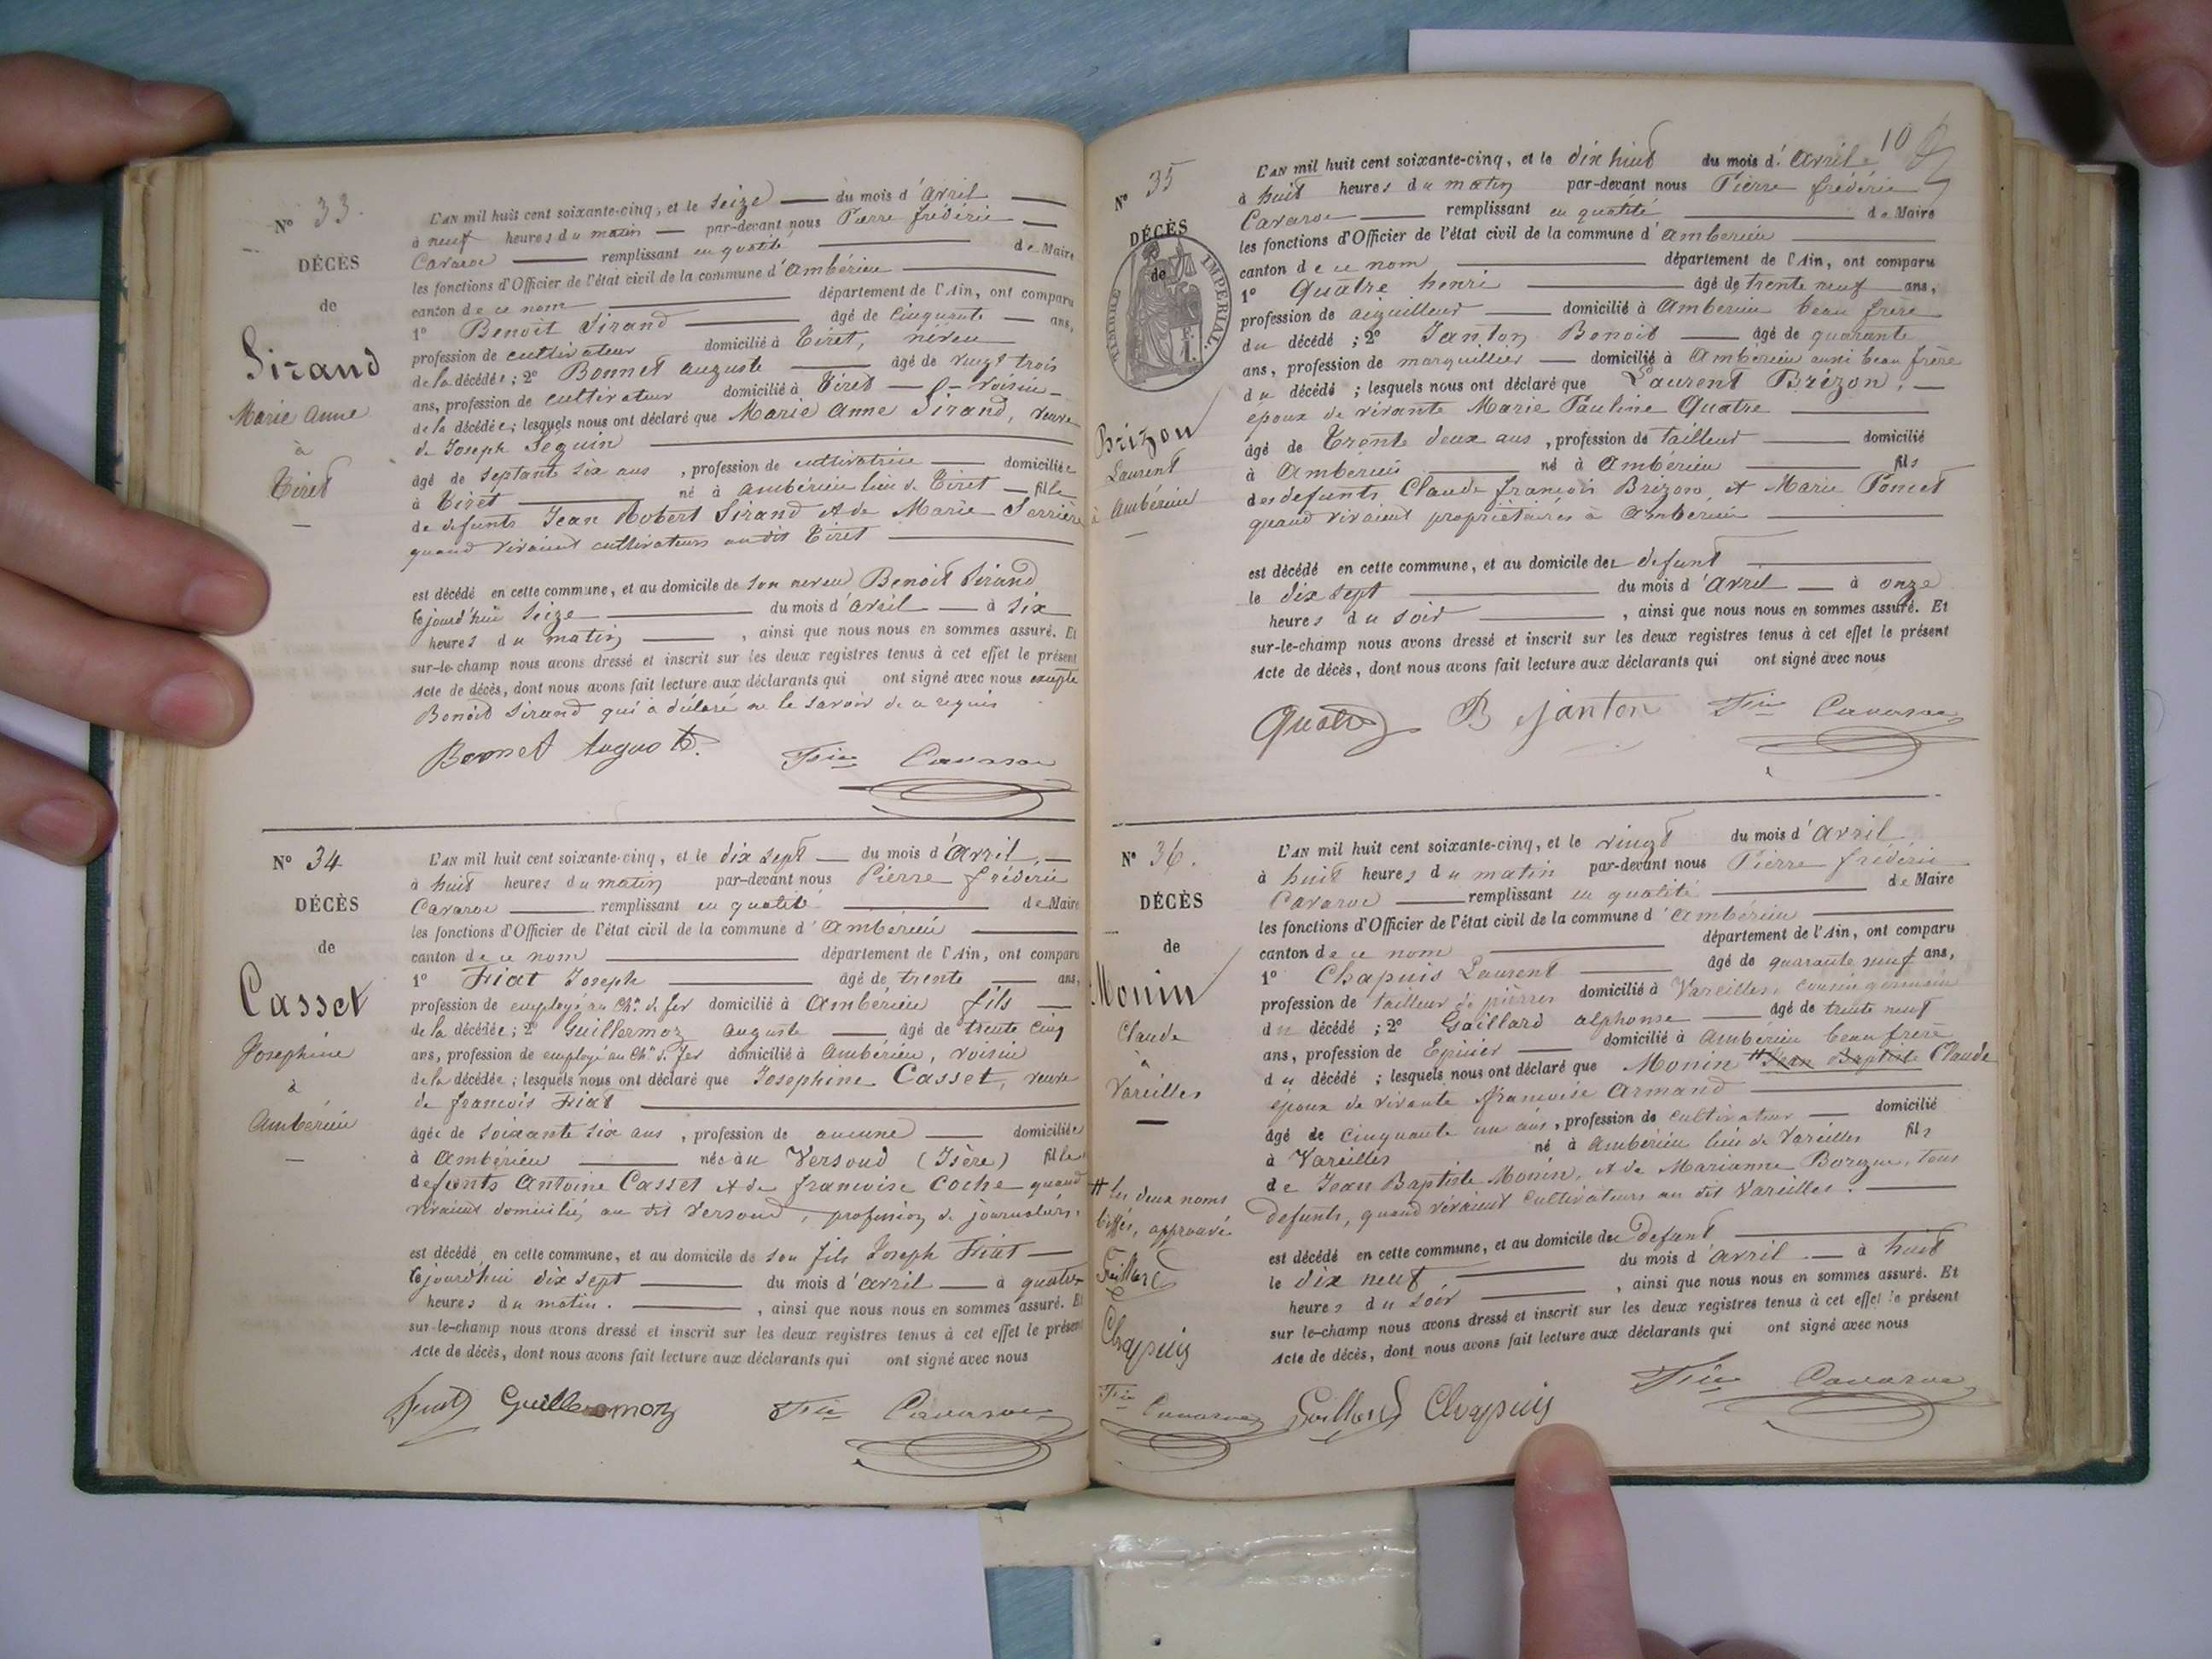 N° 33.
DÉCÈS
de
Sirand
Marie Anne
à
Tiret
L'AN mil huit cent soixante-cinq, et le seize du mois d'avril
à neuf heures du matin par-devant nous Pierre frédéric
Cavaroc remplissant en qualité de Maire
les fonctions d'Officier de l'état civil de la commune d'Ambérieu
canton de ce nom département de l'Ain, ont comparu
1° Benoit Sirand âgé de cinquante ans,
profession de cultivateur domicilié à Tiret, neveu
de la décédée ; 2° Bonnet auguste âgé de vingt trois
ans, profession de cultivateur domicilié à Tiret voisin
de la décédée ; lesquels nous ont déclaré que Marie Anne Sirand, veuve
de Joseph Séguin
âgé de septante six ans, profession de cultivatrice domiciliée
à Tiret né à ambérieu lieu de Tiret fille
de defunts Jean Robert Sirand et de Marie Serrière
quand vivaient cultivateurs au dit Tiret
est décédé en cette commune, et au domicile de son neveu Benoit Sirand
cejourd'hui seize du mois d'avril à six
heures du matin, ainsi que nous nous en sommes assuré. Et
sur-le-champ nous avons dressé et inscrit sur les deux registres tenus à cet effet le présent
Acte de décès, dont nous avons fait lecture aux déclarants qui ont signé avec nous excepté
Benoit Sirand qui a déclaré ne le savoir de ce requis
Bonnet Auguste. Fric Cavaroc
N° 34
DÉCÈS
de
Casset
Josephine
à
Ambérieu
L'AN mil huit cent soixante-cinq, et le dix sept du mois d'avril,
à huit heures du matin par-devant nous Pierre frédéric
Cavaroc remplissant en qualité de Maire
les fonctions d'Officier de l'état civil de la commune d'Ambérieu
canton de ce nom département de l'Ain, ont comparu
1° Fiat Joseph âgé de trente ans,
profession de employé au Ch.n de fer domicilié à Ambérieu fils
de la décédée ; 2° Guillermoz auguste âgé de trente cinq
ans, profession de employé au Ch.n de fer domicilié à Ambérieu, voisin
de la décédée ; lesquels nous ont déclaré que Josephine Casset, veuve
de françois Fiat
âgée de soixante six ans, profession de aucune domiciliée
à Ambérieu née au Versoud (Isère) fille
defunts Antoine Casset et de françoise Coche quand
vivaient domiciliés au dit Versoud, profession de journaliers.
est décédé en cette commune, et au domicile de son fils Joseph Fiat
cejourd'hui dix sept du mois d'avril à quatre
heures du matin., ainsi que nous nous en sommes assuré. Et
sur-le-champ nous avons dressé et inscrit sur les deux registres tenus à cet effet le présent
Acte de décès, dont nous avons fait lecture aux déclarants qui ont signé avec nous
Fiat Guillermoz Fric Cavaroc
10
N° 35
DÉCÈS
de
TIMBRE IMPÉRIAL
1 F.
Brizon
Laurent
à Ambérieu
L'AN mil huit cent soixante-cinq, et le dix huit du mois d'avril
à huit heures du matin par-devant nous Pierre frédéric
Cavaroc remplissant en qualité de Maire
les fonctions d'Officier de l'état civil de la commune d'Ambérieu
canton de ce nom département de l'Ain, ont comparu
1° Quatre henri âgé de trente neuf ans,
profession de aiguilleur domicilié à Ambérieu beau frère
du décédé ; 2° Janton Benoit âgé de quarante
ans, profession de marguillier domicilié à Ambérieu aussi beau frère
du décédé ; lesquels nous ont déclaré que Laurent Brizon,
époux de vivante Marie Pauline Quatre
âgé de trente deux ans, profession de tailleur domicilié
à Ambérieu né à Ambérieu fils
des defunts Claude françois Brizon, et Marie Poncet
quand vivaient propriétaires à Ambérieu
est décédé en cette commune, et au domicile du defunt
le dix sept du mois d'avril à onze
heures du soir, ainsi que nous nous en sommes assuré. Et
sur-le-champ nous avons dressé et inscrit sur les deux registres tenus à cet effet le présent
Acte de décès, dont nous avons fait lecture aux déclarants qui ont signé avec nous
Quatre B Janton Fric Cavaroc
N° 36.
DÉCÈS
de
Monin
Claude
à
Vareilles
# les deux noms
biffés, approuvé
Gaillard
Chapuis
Fric Cavaroc
L'AN mil huit cent soixante-cinq, et le vingt du mois d'avril
à huit heures du matin par-devant nous Pierre frédéric
Cavaroc remplissant en qualité de Maire
les fonctions d'Officier de l'état civil de la commune d'Ambérieu
canton de ce nom département de l'Ain, ont comparu
1° Chapuis Laurent âgé de quarante neuf ans,
profession de tailleur de pierres domicilié à Vareilles, cousin germain
du décédé ; 2° Gaillard alphonse âgé de trente neuf
ans, profession de Epicier domicilié à Ambérieu beau frère
du décédé ; lesquels nous ont déclaré que Monin # Jean Baptiste Claude
époux de vivante françoise Armand
âgé de cinquante un ans, profession de cultivateur domicilié
à Vareilles né à Ambérieu lieu de Vareilles fils
de Jean Baptiste Monin, et de Marianne tous
defunts, quand vivaient cultivateurs au dit Vareilles.
est décédé en cette commune, et au domicile du defunt
le dix neuf du mois d'avril à huit
heures du soir, ainsi que nous nous en sommes assuré. Et
sur le-champ nous avons dressé et inscrit sur les deux registres tenus à cet effet le présent
Acte de décès, dont nous avons fait lecture aux déclarants qui ont signé avec nous
Gaillard Chapuis Fric Cavaroc